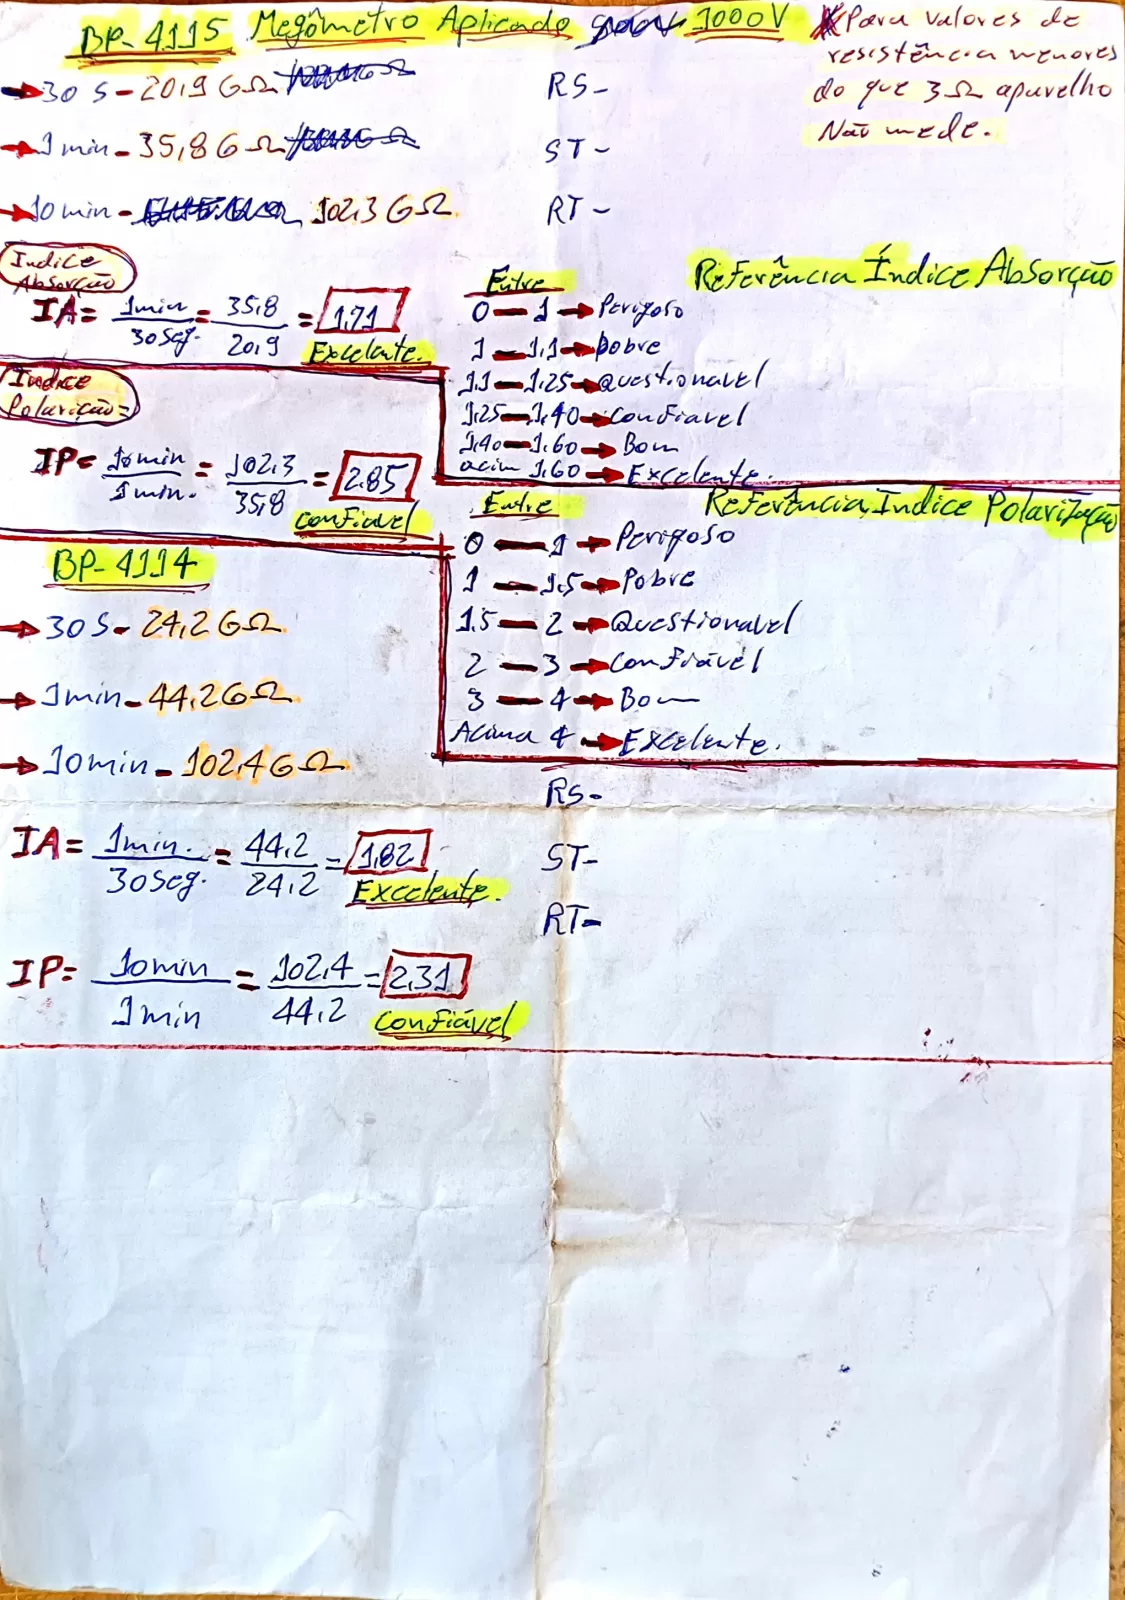 BP-4115 Megômetro Aplicado 1000V
*Para valores de
resistência menores
do que 3Ω aparelho
Não mede.
30 S - 20,9 GΩ
RS-
1 min - 35,8 GΩ
ST-
10 min - 102,3 GΩ
RT-
Indice
Absorção
IA = 1min / 30Seg. = 35,8 / 20,9 = 1,71
Excelente.
Referência Índice Absorção
Entre
0 — 1 → Perigoso
1 — 1,1 → Pobre
1,1 — 1,25 → Questionavel
1,25 — 1,40 → Confiavel
1,40 — 1,60 → Bom
acim 1,60 → Excelente.
Indice
Polarição=
IP = 10min / 1min. = 102,3 / 35,8 = 2,85
Confiavel
Referência Indice Polarização
Entre
0 — 1 → Perigoso
1 — 1,5 → Pobre
1,5 — 2 → Questionavel
2 — 3 → Confiável
3 — 4 → Bom
Acima 4 → Excelente.
BP-4114
30 S - 24,2 GΩ
1min - 44,2 GΩ
10min - 102,4 GΩ
RS-
ST-
RT-
IA = 1min. / 30Seg. = 44,2 / 24,2 = 1,82
Excelente.
IP = 10min / 1min = 102,4 / 44,2 = 2,31
Confiável